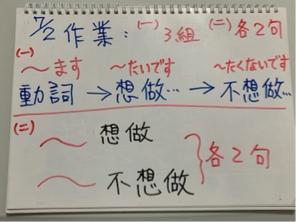 7/2作業：(一)3組 (二)各2句
(一)
～ます ～たいです ～たくないです
動詞→想做…→不想做…
(二)
～想做
～不想做
各2句